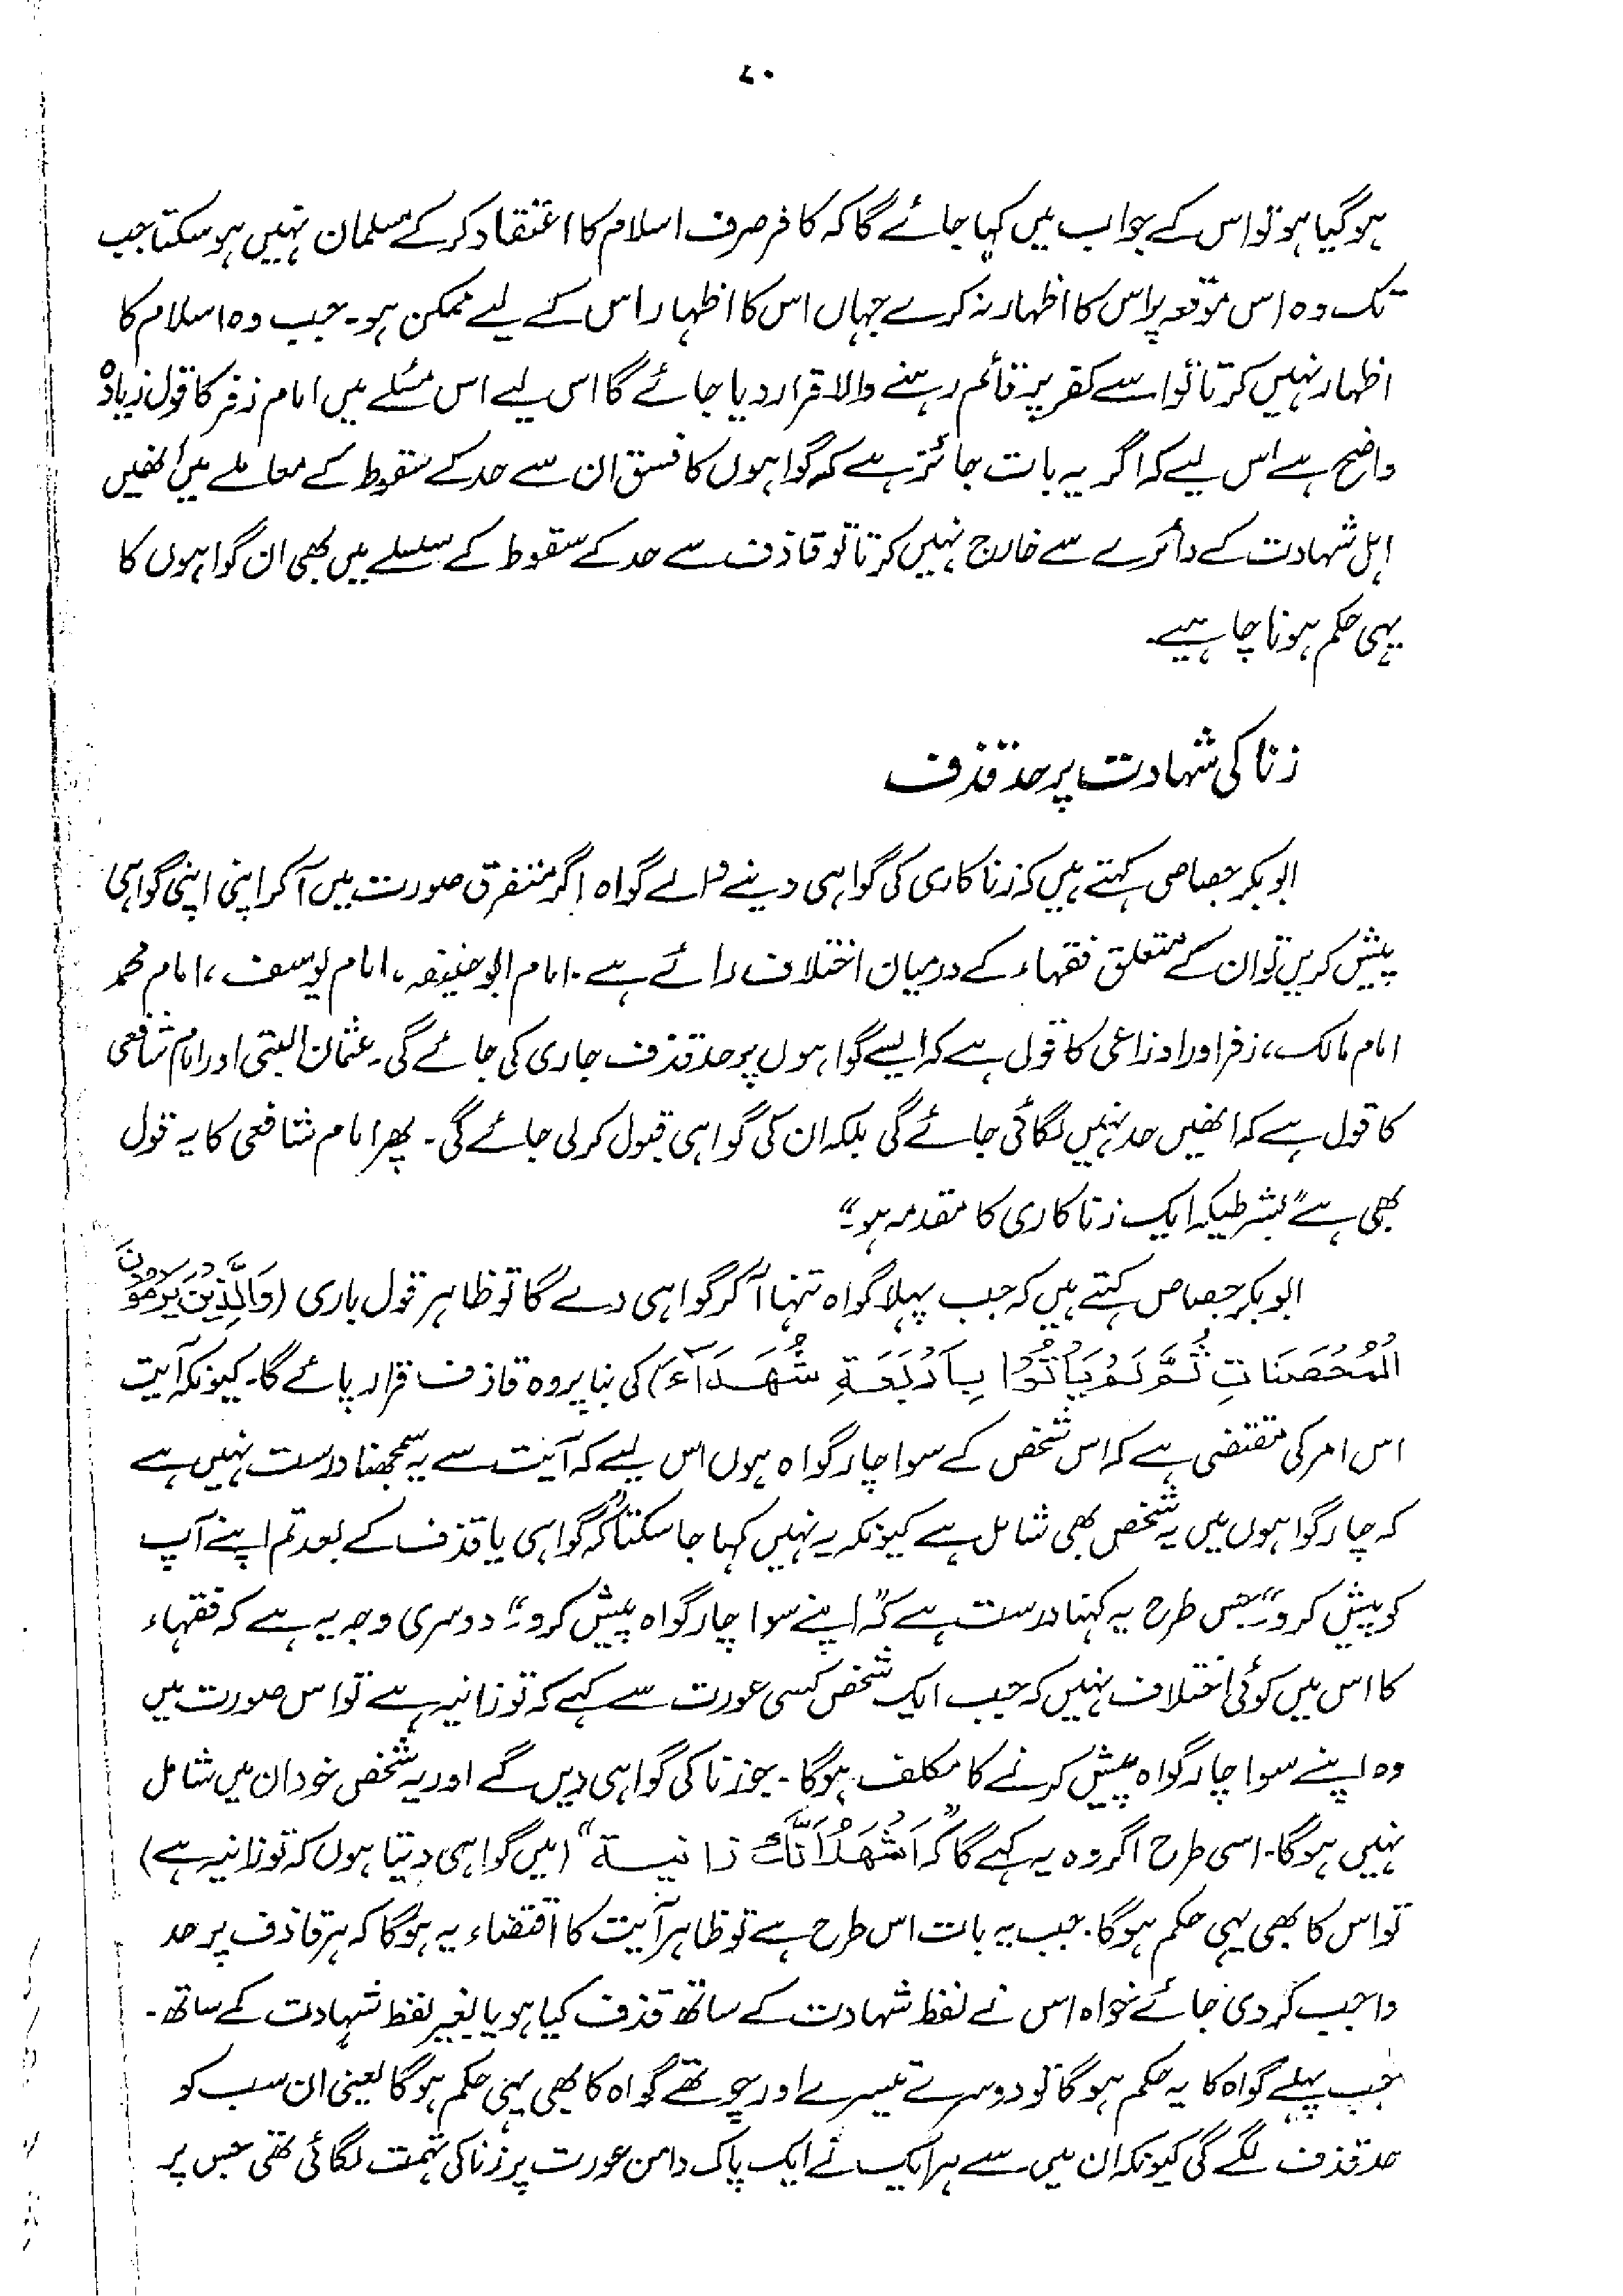 ۷۰
ہوگیا ہو تو اس کے جواب میں کہا جائے گا کہ کافر صرف اسلام کا اعتقاد کر کے مسلمان نہیں ہو سکتا جب
تک وہ اس موقعہ پر اس کا اظہار نہ کرے جہاں اس کا اظہار اس کے لیے ممکن ہو۔ جب وہ اسلام کا
اظہار نہیں کرتا تو اسے کفر پر قائم رہنے والا قرار دیا جائے گا اس لیے اس مسئلے میں امام زفر کا قول زیادہ
واضح ہے اس لیے کہ اگر یہ بات جائز ہے کہ گواہوں کا فسق ان سے حد کے سقوط کے معاملے میں انھیں
اہل شہادت کے دائرے سے خارج نہیں کرتا تو قاذف سے حد کے سقوط کے سلسلے میں بھی ان گواہوں کا
یہی حکم ہونا چاہیے۔
زنا کی شہادت پر حد قذف
ابوبکر جصاص کہتے ہیں کہ زنا کاری کی گواہی دینے والے گواہ اگر متفرق صورت میں آ کر اپنی اپنی گواہی
پیش کریں تو ان کے متعلق فقہاء کے درمیان اختلاف رائے ہے۔ امام ابوحنیفہ، امام یوسف، امام محمد
امام مالک، زفر اور اوزاعی کا قول ہے کہ ایسے گواہوں پر حد قذف جاری کی جائے گی۔ عثمان البتی اور امام شافعی
کا قول ہے کہ انھیں حد نہیں لگائی جائے گی بلکہ ان کی گواہی قبول کر لی جائے گی۔ پھر امام شافعی کا یہ قول
بھی ہے "بشرطیکہ ایک زنا کاری کا مقدمہ ہو۔"
ابوبکر جصاص کہتے ہیں کہ جب پہلا گواہ تنہا آ کر گواہی دے گا تو ظاہر قول باری (وَالَّذِيْنَ يَرْمُوْنَ
الْمُحْصَنَاتِ ثُمَّ لَمْ يَأْتُوْا بِاَرْبَعَةِ شُهَدَآءَ) کی بنا پر وہ قاذف قرار پائے گا۔ کیونکہ آیت
اس امر کی مقتضی ہے کہ اس شخص کے سوا چار گواہ ہوں اس لیے کہ آیت سے یہ سمجھنا درست نہیں ہے
کہ چار گواہوں میں یہ شخص بھی شامل ہے کیونکہ یہ نہیں کہا جا سکتا کہ "گواہی یا قذف کے بعد تم اپنے آپ
کو پیش کرو" جس طرح یہ کہنا درست ہے کہ "اپنے سوا چار گواہ پیش کرو۔" دوسری وجہ یہ ہے کہ فقہاء
کا اس میں کوئی اختلاف نہیں کہ جب ایک شخص کسی عورت سے کہے کہ تو زانیہ ہے تو اس صورت میں
وہ اپنے سوا چار گواہ پیش کرنے کا مکلف ہوگا۔ جو زنا کی گواہی دیں گے اور یہ شخص خود ان میں شامل
نہیں ہوگا۔ اسی طرح اگر وہ یہ کہے گا کہ "اَشْهَدُ اَنَّكِ زانية" (میں گواہی دیتا ہوں کہ تو زانیہ ہے)
تو اس کا بھی یہی حکم ہوگا۔ جب یہ بات اس طرح ہے تو ظاہر آیت کا اقتضاء یہ ہوگا کہ ہر قاذف پر حد
واجب کر دی جائے خواہ اس نے لفظ شہادت کے ساتھ قذف کیا ہو یا بغیر لفظ شہادت کے ساتھ۔
جب پہلے گواہ کا یہ حکم ہوگا تو دوسرے تیسرے اور چوتھے گواہ کا بھی یہی حکم ہوگا یعنی ان سب کو
حد قذف لگے گی کیونکہ ان میں سے ہر ایک نے ایک پاک دامن عورت پر زنا کی تہمت لگائی تھی جس پر